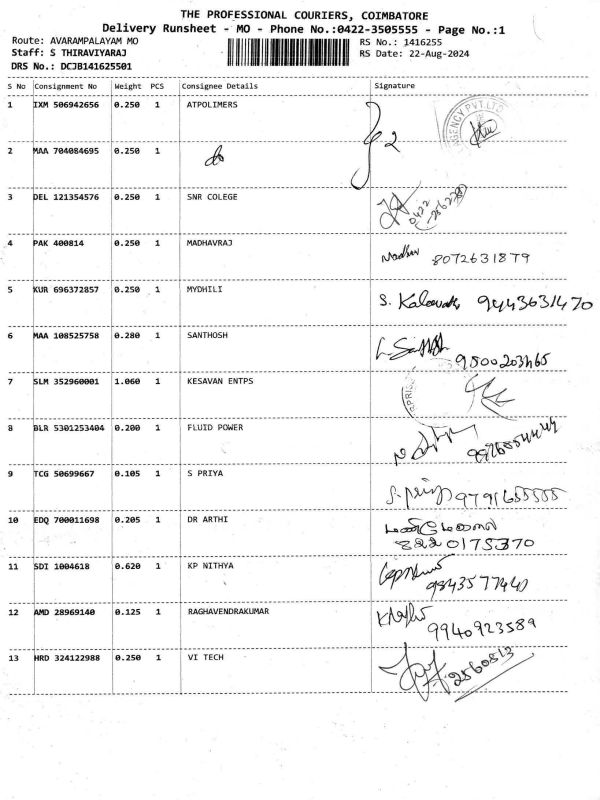 THE PROFESSIONAL COURIERS, COIMBATORE
Delivery Runsheet - MO - Phone No.:0422-3505555 - Page No.:1
Route: AVARAMPALAYAM MO RS No.: 1416255
Staff: S THIRAVIYARAJ RS Date: 22-Aug-2024
DRS No.: DCJB141625501
S No Consignment No Weight PCS Consignee Details Signature
1 IXM 506942656 0.250 1 ATPOLIMERS AGENCY PVT.LTD
2 MAA 704084695 0.250 1 do
3 DEL 121354576 0.250 1 SNR COLEGE 0422
4 PAK 400814 0.250 1 MADHAVRAJ Madhav 8072631879
5 KUR 696372857 0.250 1 MYDHILI S. 9443631470
6 MAA 108525758 0.280 1 SANTHOSH 9500203465
7 SLM 352960001 1.060 1 KESAVAN ENTPS
8 BLR 5301253404 0.200 1 FLUID POWER
9 TCG 50699667 0.105 1 S PRIYA S. priya 9791655555
10 EDQ 700011698 0.205 1 DR ARTHI
8220175370
11 SDI 1004618 0.620 1 KP NITHYA
9843577440
12 AMD 28969140 0.125 1 RAGHAVENDRAKUMAR
9940923589
13 HRD 324122988 0.250 1 VI TECH 2560513